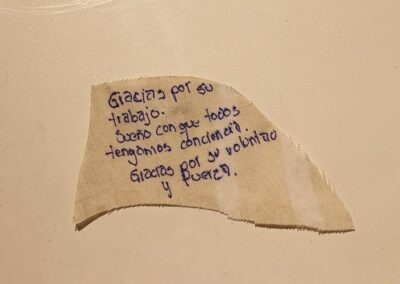 Gracias por su
trabajo.
Sueño con que todos
tengamos conciencia.
Gracias por su voluntad
y fuerza.